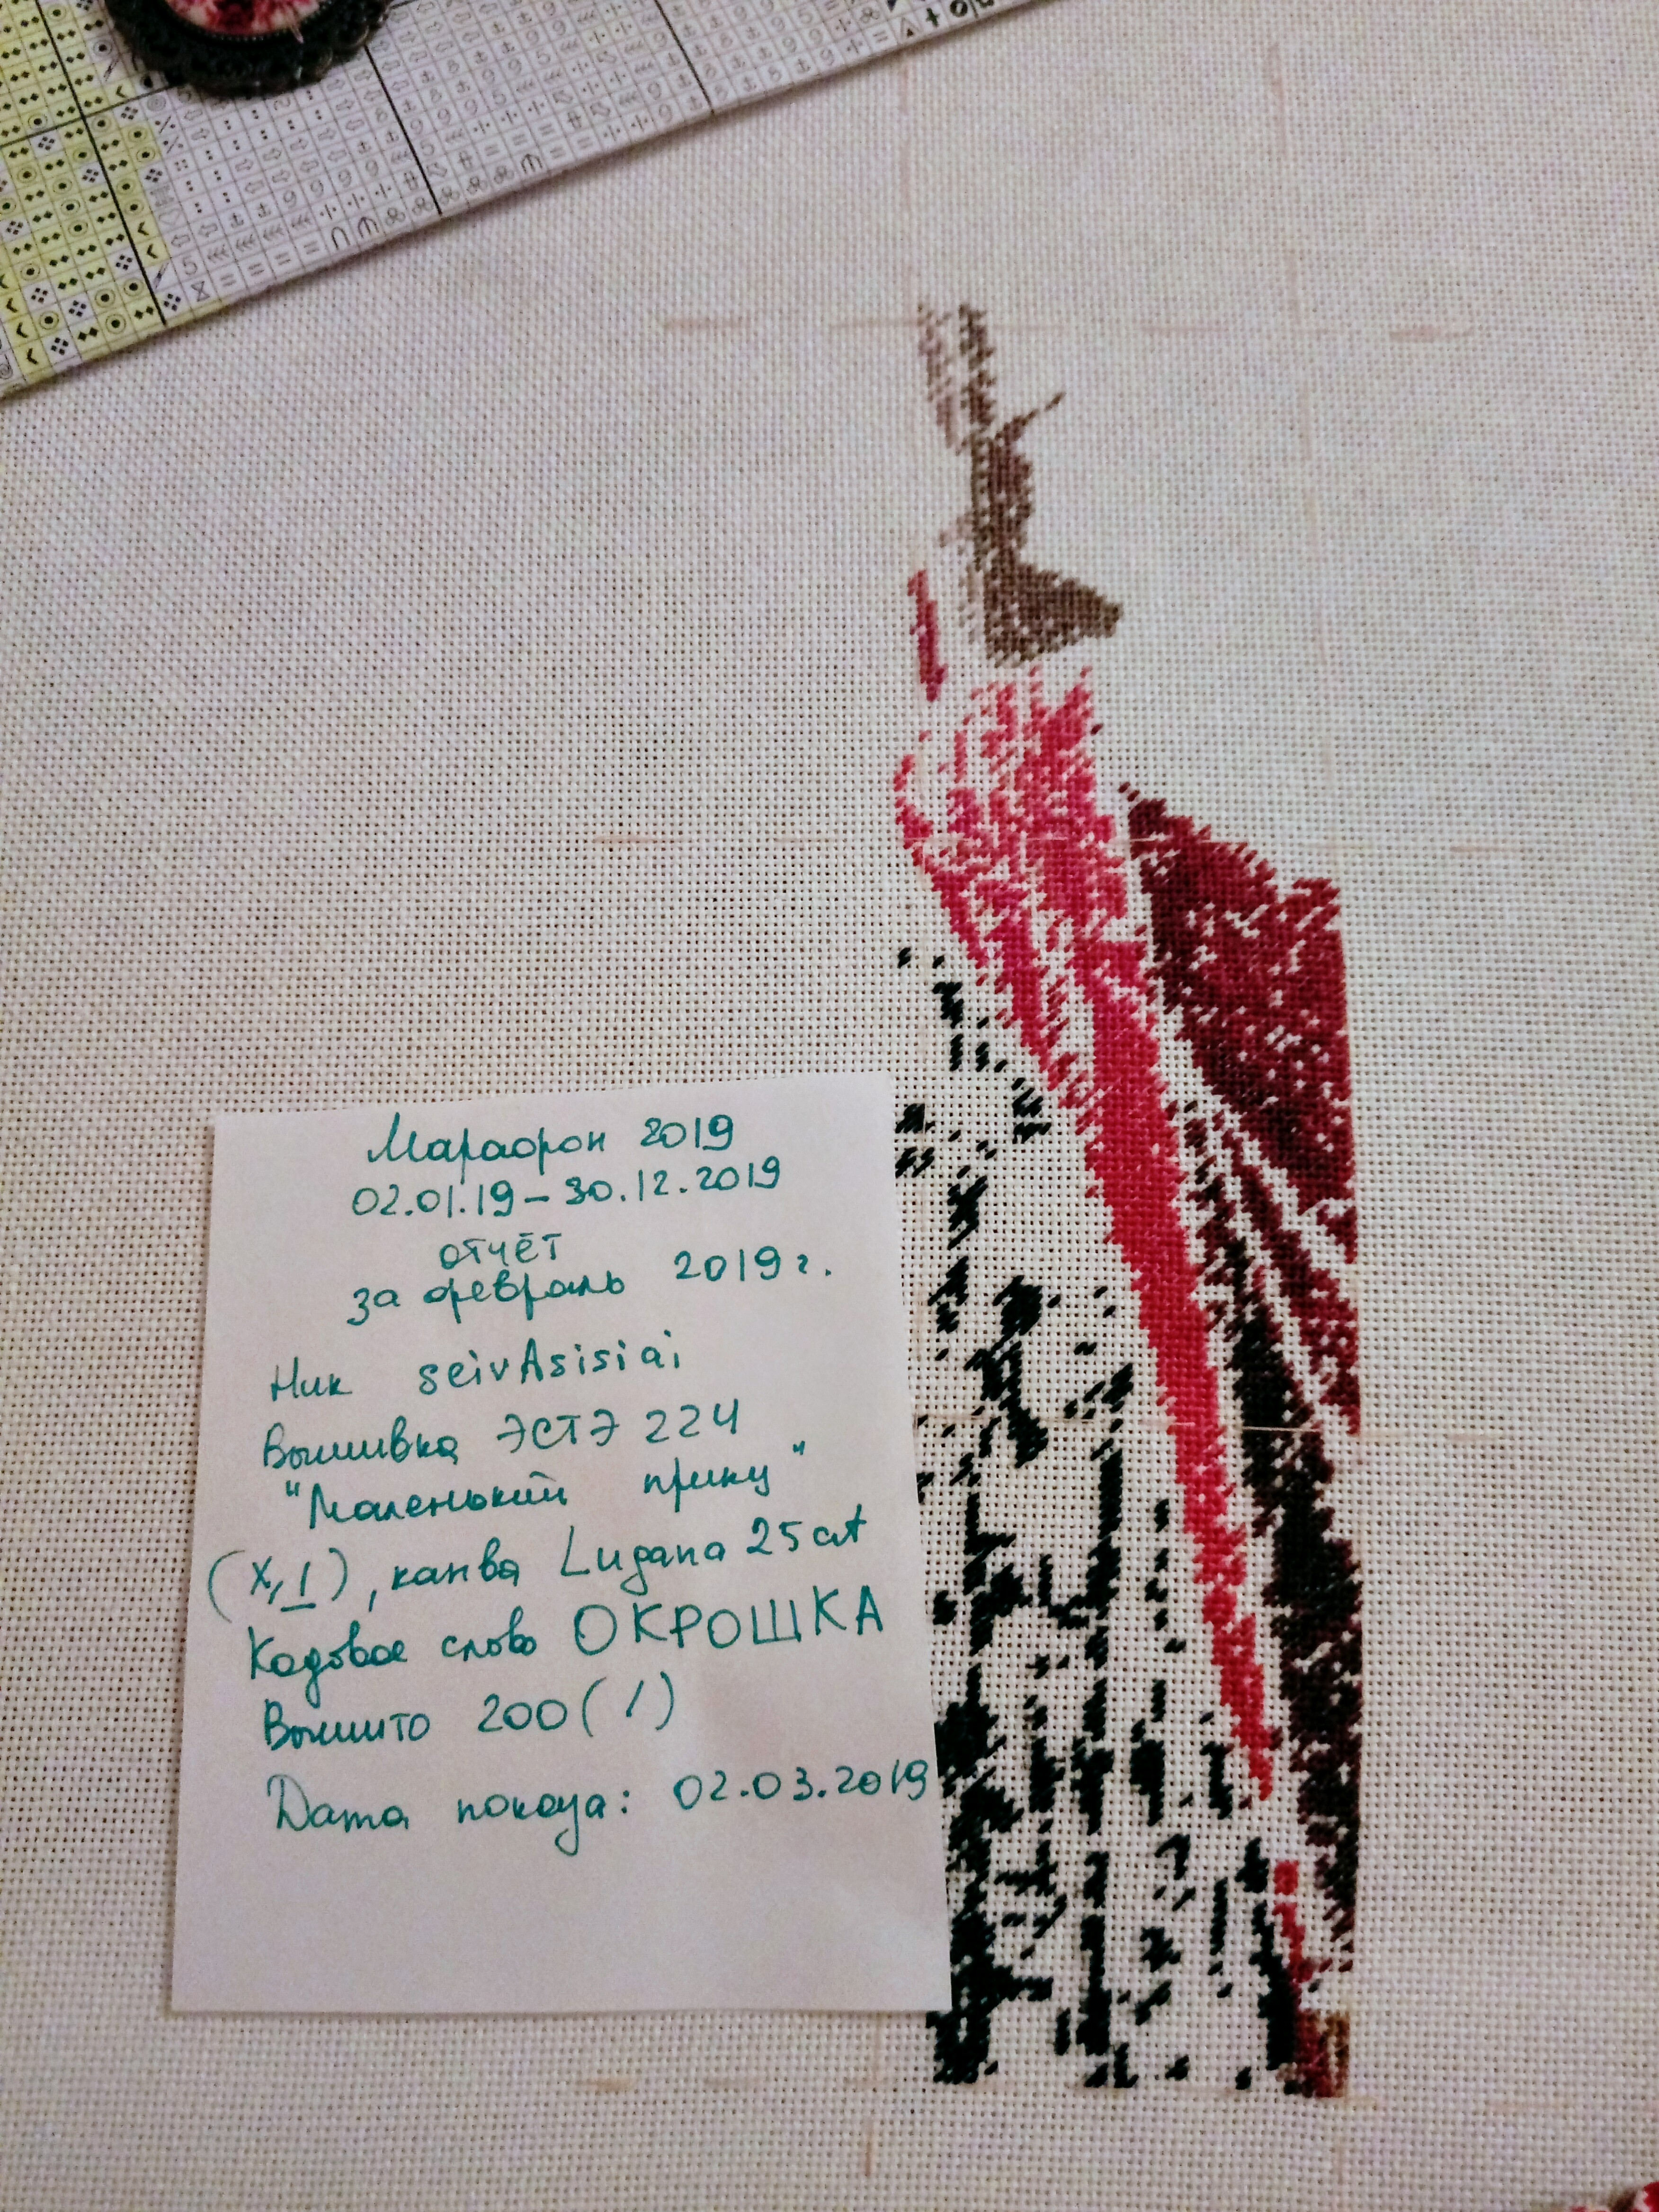 Марафон 2019
02.01.19 – 30.12.2019
отчёт
за февраль 2019 г.
Ник seivAsisiai
Вышивка ЭСТЭ 224
"Маленький принц"
(х, 1), канва Lugana 25 ct
Кодовое слово ОКРОШКА
Вышито 200 ( / )
Дата показа: 02.03.2019